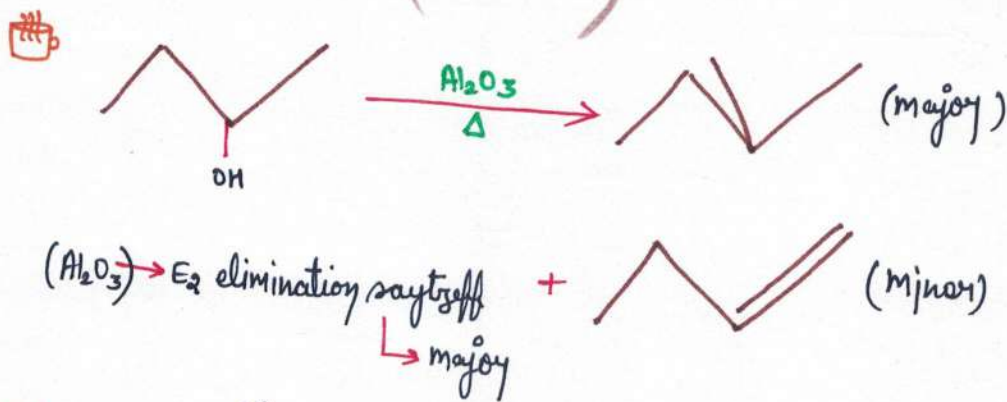 Al₂O₃
Δ
(major)
OH
(Al₂O₃) → E₂ elimination saytzeff + (Minor)
→ major